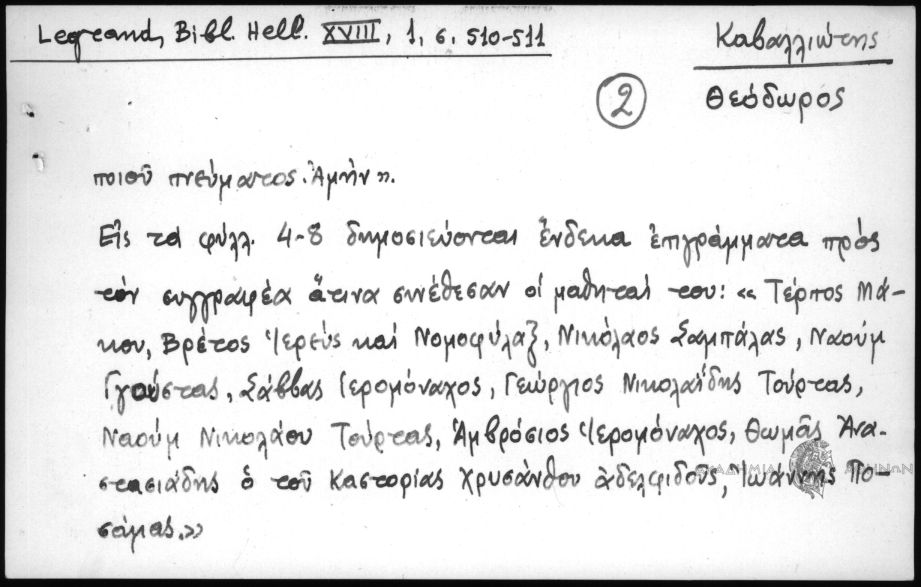 Legrand, Bibl. Hell. XVIII, 1, σ. 510-511
Καβαλλιώτης
Θεόδωρος
2
ποιοῦ πνεύματος. Ἀμήν».
Εἰς τὰ φύλλ. 4-8 δημοσιεύονται ἕνδεκα ἐπιγράμματα πρὸς
τὸν συγγραφέα ἅτινα συνέθεσαν οἱ μαθηταί του: «Τέρπος Μά-
κου, Βρέτος Ἱερεὺς καὶ Νομοφύλαξ, Νικόλαος Σαμπάλας, Ναοὺμ
Γγούστας, Σάββας Ἱερομόναχος, Γεώργιος Νικολαΐδης Τούρτας,
Ναοὺμ Νικολάου Τούρτας, Ἀμβρόσιος Ἱερομόναχος, Θωμᾶς Ἀνα-
στασιάδης ὁ τοῦ Καστορίας Χρυσάνθου ἀδελφιδοῦς, Ἰωάννης Πο-
σάμας.»
ΑΚΑΔΗΜΙΑ ΑΘΗΝΩΝ